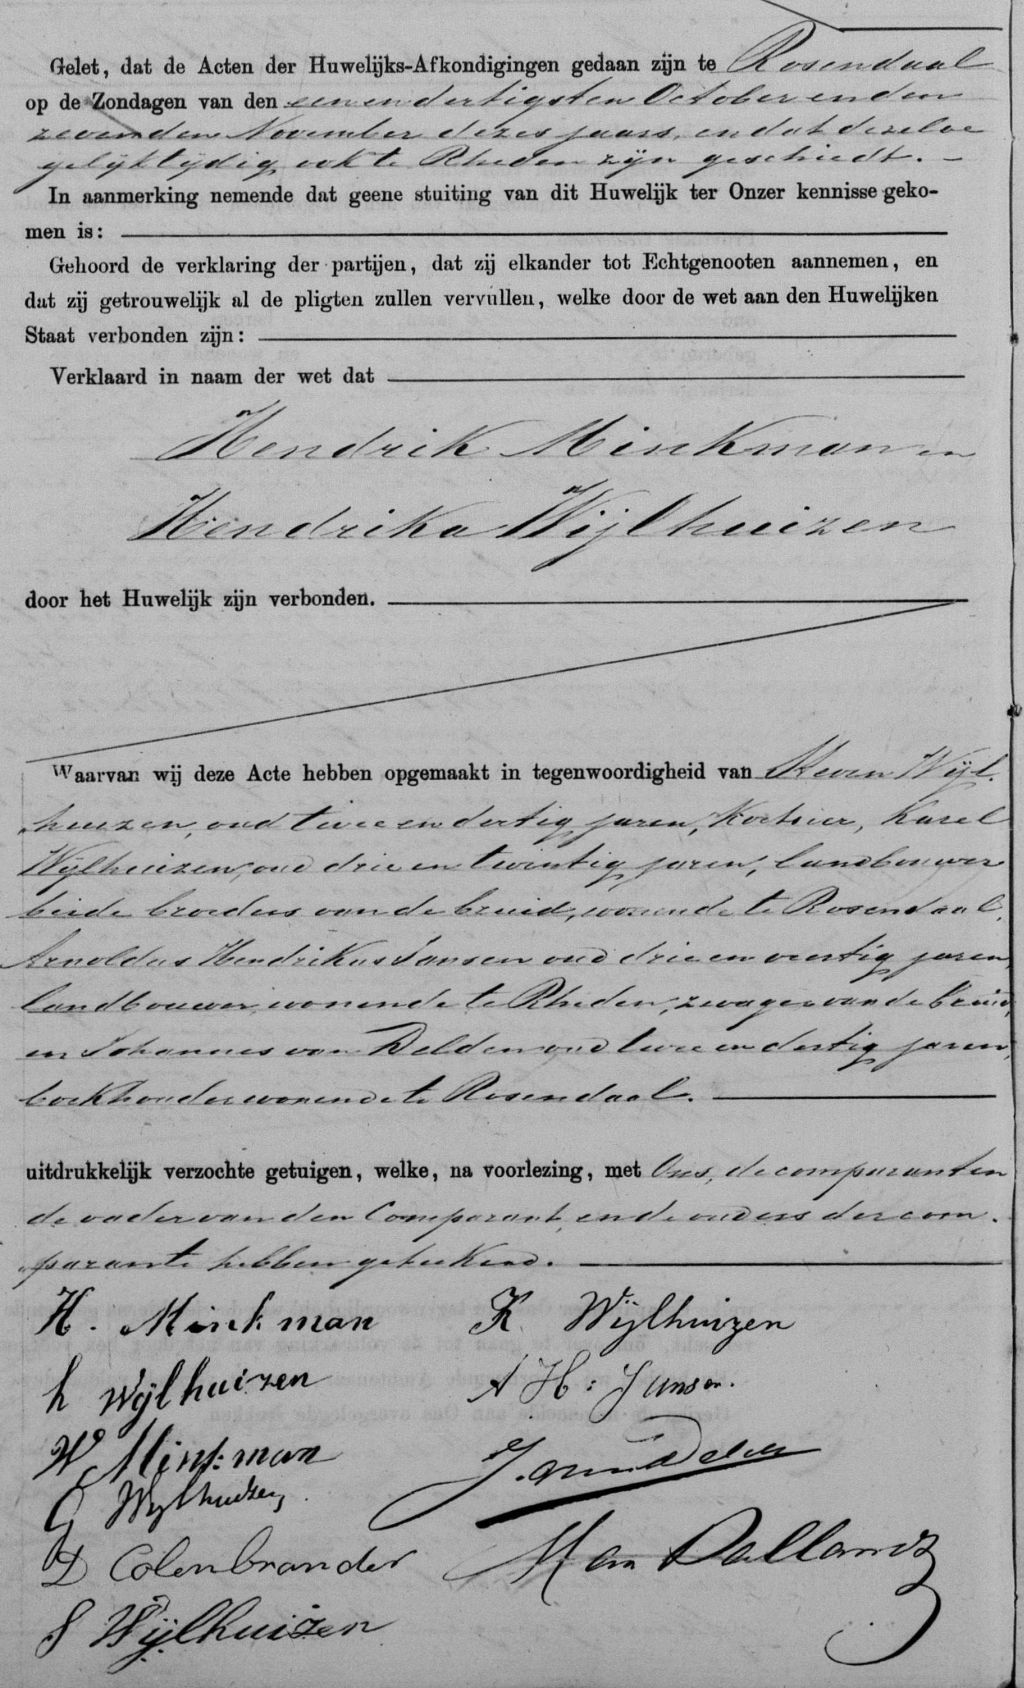 Gelet, dat de Acten der Huwelijks-Afkondigingen gedaan zijn te Rosendaal
op de Zondagen van den een en dertigsten October en den
zevenden November dezes jaars, en dat dezelve
gelijktijdig ook te Rheden zijn geschiedt.
In aanmerking nemende dat geene stuiting van dit Huwelijk ter Onzer kennisse geko-
men is:
Gehoord de verklaring der partijen, dat zij elkander tot Echtgenooten aannemen, en
dat zij getrouwelijk al de pligten zullen vervullen, welke door de wet aan den Huwelijken
Staat verbonden zijn:
Verklaard in naam der wet dat
Hendrik Minkman en
Hendrika Wijlhuizen
door het Huwelijk zijn verbonden.
Waarvan wij deze Acte hebben opgemaakt in tegenwoordigheid van Steven Wijl-
huizen, oud twee en dertig jaren, Koetsier, Karel
Wijlhuizen, oud drie en twintig jaren, landbouwer
beide broeders van de bruid, wonende te Rosendaal,
Arnoldus Hendrikus Jansen oud drie en veertig jaren,
landbouwer, wonende te Rheden, zwager van de bruid,
en Johannes van Delden oud twee en dertig jaren,
boekhouder wonende te Rosendaal.
uitdrukkelijk verzochte getuigen, welke, na voorlezing, met Ons, de comparanten
de vader van den Comparant, en de ouders der com-
parante hebben geteekend.
H. Minkman
K Wijlhuizen
h Wijlhuizen
A H: Jansen.
W Minkman
J. van Delden
G Wijlhuizen
D Colenbrander
Man Pallandt
S Wijlhuizen